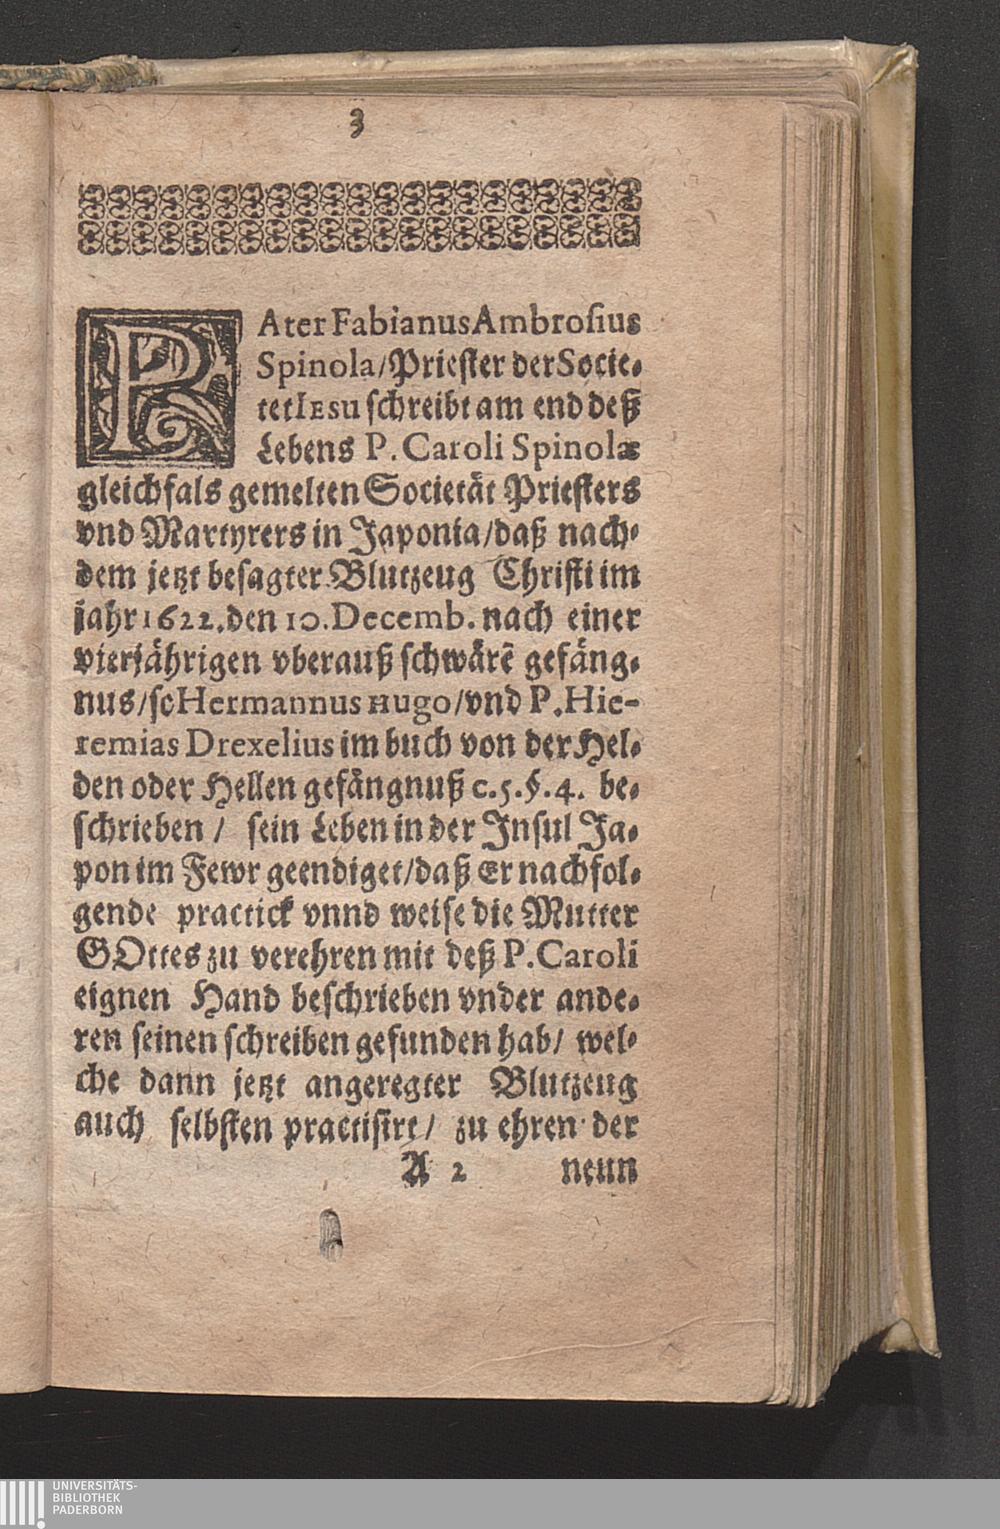 3
PAter Fabianus Ambrosius
Spinola/Priester der Socie-
tet IESU schreibt am end deß
Lebens P. Caroli Spinolæ
gleichfals gemelten Societät Priesters
vnd Martyrers in Japonia/daß nach-
dem jetzt besagter Blutzeug Christi im
jahr 1622. den 10. Decemb. nach einer
vierjährigen vberauß schwärẽ gefäng-
nus/so Hermannus Hugo/vnd P. Hie-
remias Drexelius im buch von der Hel-
den oder Hellen gefängnuß c.5.§.4. be-
schrieben / sein Leben in der Insul Ja-
pon im Fewr geendiget/daß Er nachfol-
gende practick vnnd weise die Mutter
GOttes zu verehren mit deß P. Caroli
eignen Hand beschrieben vnder ande-
ren seinen schreiben gefunden hab/ wel-
che dann jetzt angeregter Blutzeug
auch selbsten practisirt/ zu ehren der
A 2 neun
UNIVERSITÄTS-
BIBLIOTHEK
PADERBORN